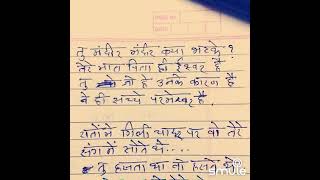 तु मंदीर मंदीर क्या भटके ?
तेरे माता पिता ही ईश्वर है
तु जो है उनके कारण है
वे ही सच्चे परमेश्वर है.
रातोंमे गिली चादर पर वो तेरे
संग में सोते थे.....
तु हसता था वो हसते थे
smule